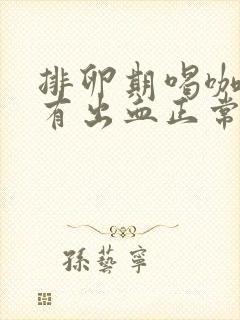 排卵期喝咖
有出血正常
孫藝寧